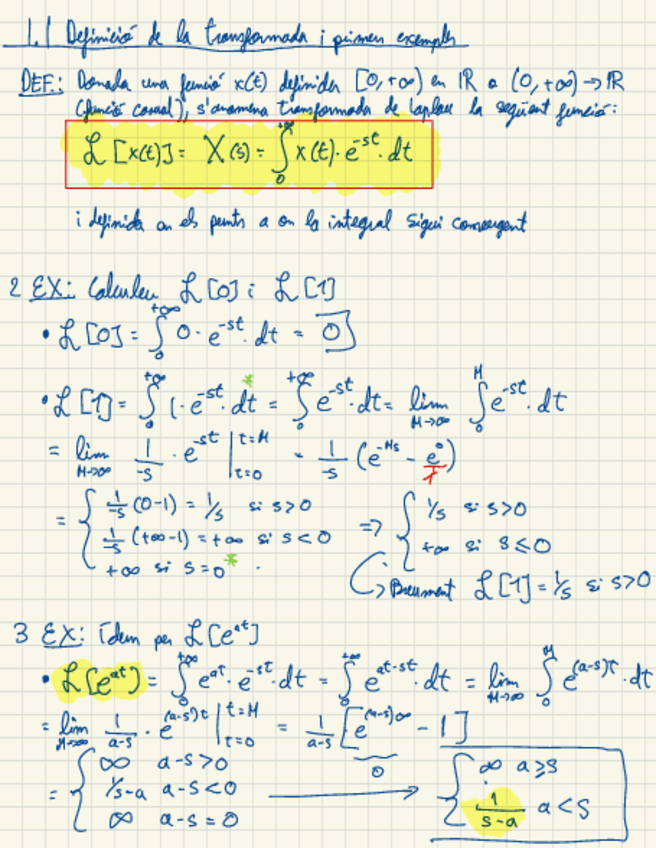 1.1 Definició de la transformada i primers exemples
DEF.: Donada una funció x(t) definida [0,+∞) en ℝ o (0,+∞) → ℝ
(funció causal), s'anomena transformada de Laplace la següent funció:
ℒ[x(t)] = X(s) = ∫₀^{+∞} x(t)·e^{-st}·dt
i definida en els punts a on la integral sigui convergent
2 EX.: Calculeu ℒ[0] i ℒ[1]
• ℒ[0] = ∫₀^{+∞} 0·e^{-st}·dt = 0
• ℒ[1] = ∫₀^{+∞} 1·e^{-st}·dt * = ∫₀^{+∞} e^{-st}·dt = lim_{M→∞} ∫₀^M e^{-st}·dt
= lim_{M→∞} 1/-s · e^{-st} |_{t=0}^{t=M} = 1/-s (e^{-Ms} - e⁰) 1
= { 1/-s (0-1) = 1/s si s>0
1/-s (+∞-1) = +∞ si s<0
+∞ si s=0 *
=> { 1/s si s>0
+∞ si s≤0
Breument ℒ[1] = 1/s si s>0
3 EX: Ídem per ℒ[e^{at}]
• ℒ[e^{at}] = ∫₀^{+∞} e^{at}·e^{-st}·dt = ∫₀^{+∞} e^{at-st}·dt = lim_{M→∞} ∫₀^M e^{(a-s)t}·dt
= lim_{M→∞} 1/a-s · e^{(a-s)t} |_{t=0}^{t=M} = 1/a-s [e^{(a-s)∞} - 1]
0
= { ∞ a-s>0
1/s-a a-s<0
∞ a-s=0
→ { ∞ a≥s
1/s-a a<s